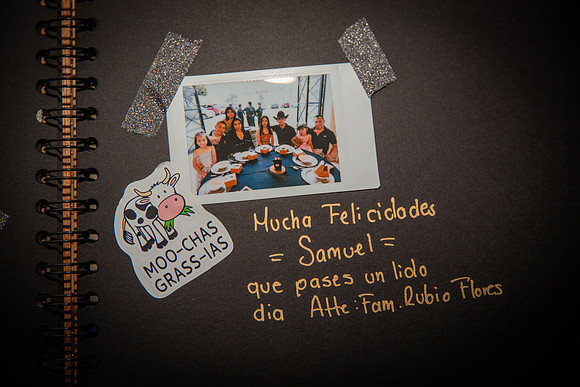 MOO-CHAS
GRASS-IAS
Mucha Felicidades
= Samuel =
que pases un lido
dia Atte: Fam. Rubio Flores